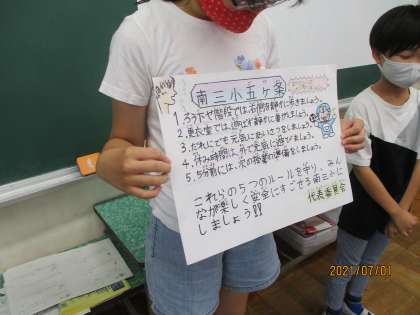 南三小五ヶ条
1.ろうかや階段では、右側を静かに歩きましょう。
2.更衣室では、
3.だれにでも元気にあいさつをしましょう。
4.休み時間は、外で元気に遊びましょう。
5.5分前には、次の授業の準備をしましょう。
これらの5つのルールを守り、みん
なが楽しく安全にすごせる南三小に
しましょう!!
代表委員会
2021/07/01